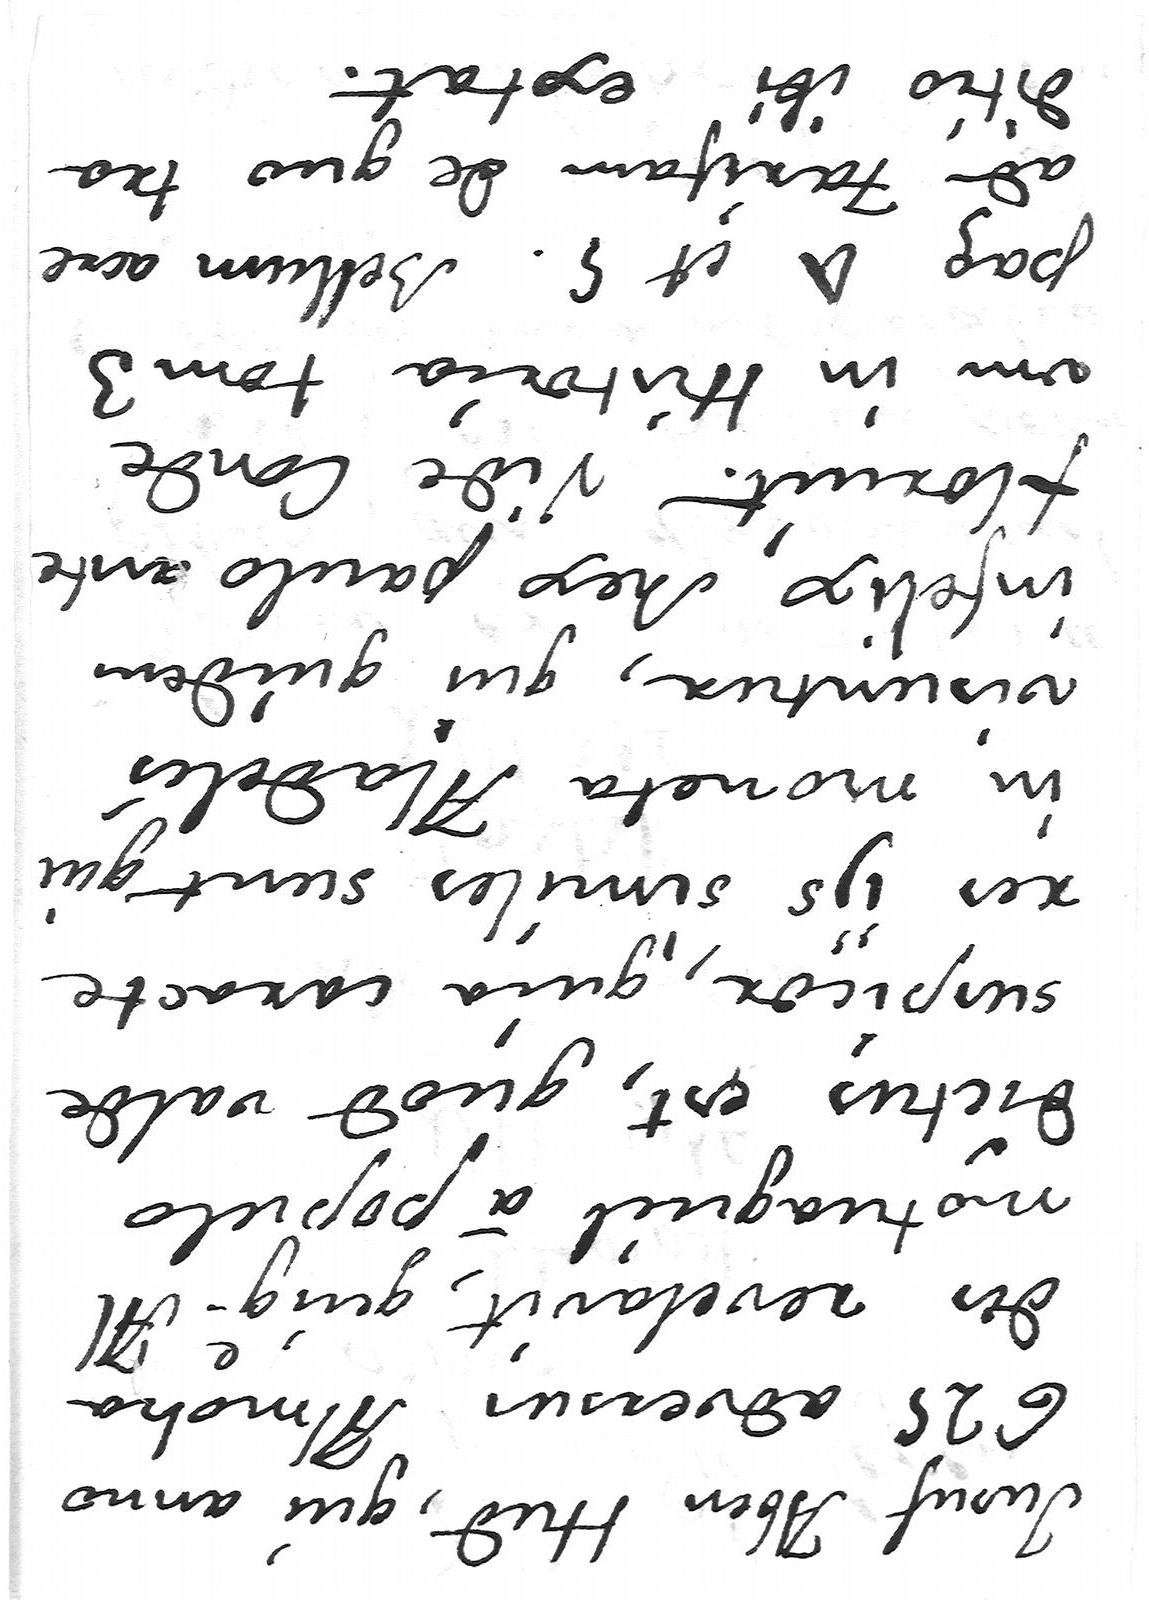 Jusuf Aben Hud, qui anno
625 adversus Almoha
des revelavit, quiq-e Al
motuaquil ā populo
dictus est, quod valde
suspicor, quia caracte
res ijs similes sunt qui
in moneta Aladelis
visuntur, qui quidem
infelix rex paulo ante
floruit. Vide Conde
um in Historia tom 3
pag et 5. Bellum acre
ad Tarifam de quo tra
ditio ibi extat.